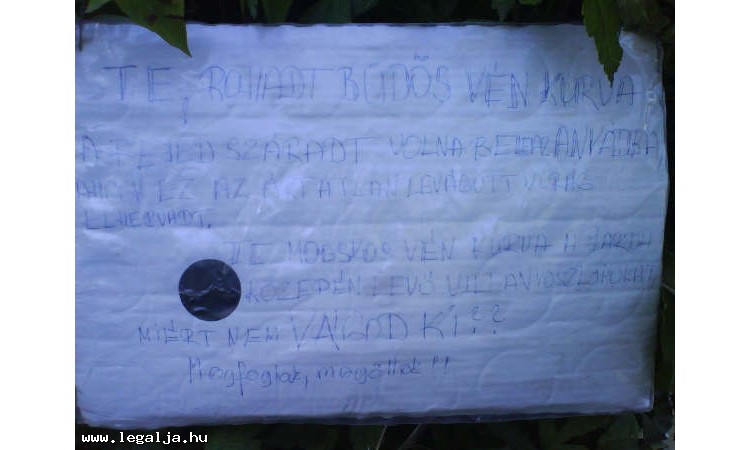 TE, ROHADT BÜDÖS VÉN KURVA
SZÁRADT VOLNA BELE AZ ANYÁDBA
EZ AZ ÁRTATLAN LEVÁGOTT VIRÁG
ELHERVADT.
TE MOCSKOS VÉN KURVA A JÁRDA
KÖZEPÉN LEVŐ VILLANYOSZLOPOKAT
MIÉRT NEM VÁGOD KI??
Megfoglak, megöllek!!
www.legalja.hu